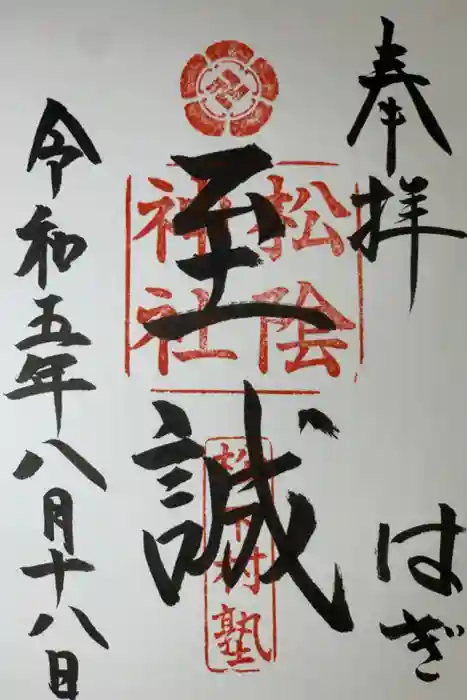 奉拝
はぎ
至誠
松陰
神社
松下村塾
令和五年八月十八日